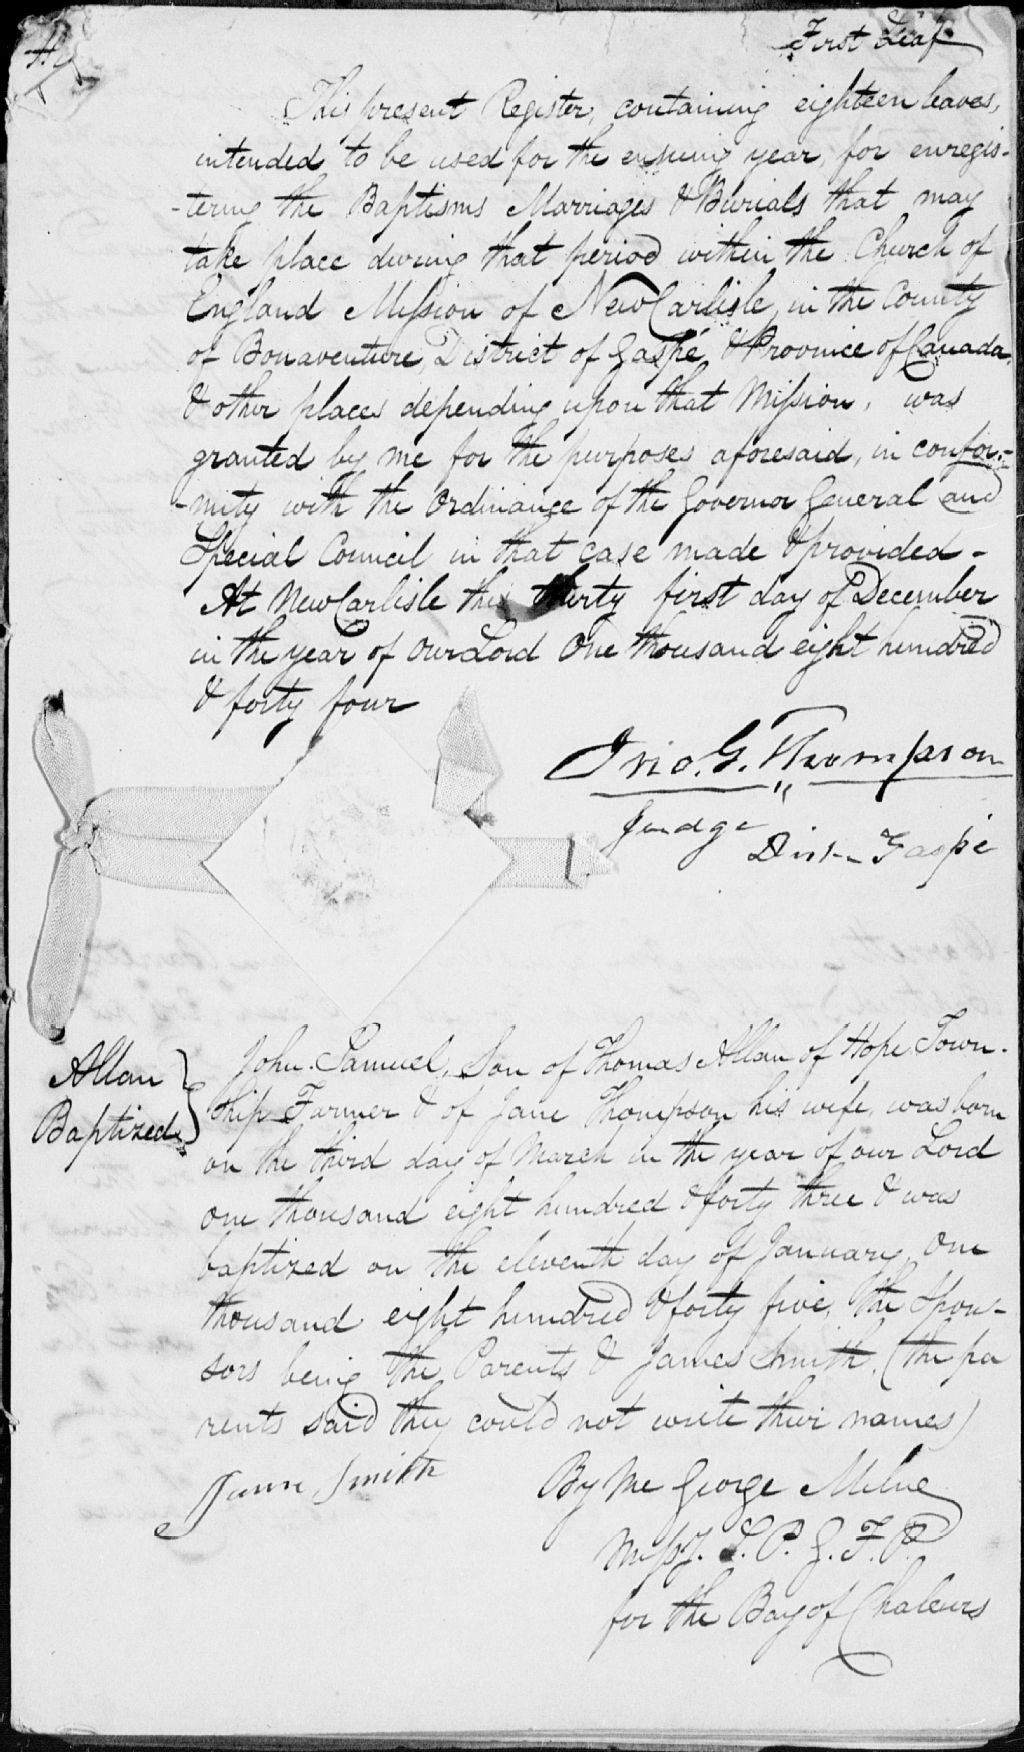 First Leaf
This present Register, containing eighteen leaves,
intended to be used for the ensuing year, for enregis-
-tering the Baptisms Marriages & Burials that may
take place during that period within the Church of
England Mission of New Carlisle, in the County
of Bonaventure, District of Gaspé, & Province of Canada,
& other places depending upon that Mission, was
granted by me for the purposes aforesaid, in confor-
-mity with the Ordinance of the Governor General and
Special Council in that case made & provided -
At New Carlisle this thirty first day of December
in the year of Our Lord One thousand eight hundred
& forty four
Jno. G. Thompson
Judge
Dist. Gaspé
Allan
Baptized
John Samuel, Son of Thomas Allan of Hope Town-
ship Farmer & of Jane Thompson his wife, was born
on the third day of March in the year of our Lord
one thousand eight hundred & forty three & was
baptized on the eleventh day of January, One
thousand eight hundred & forty five, The Spon-
sors being the Parents & James Smith, (the pa
rents said they could not write their names)
James Smith
By Me George Milne
Missy. S. P. G. F. P.
for the Bay of Chaleurs